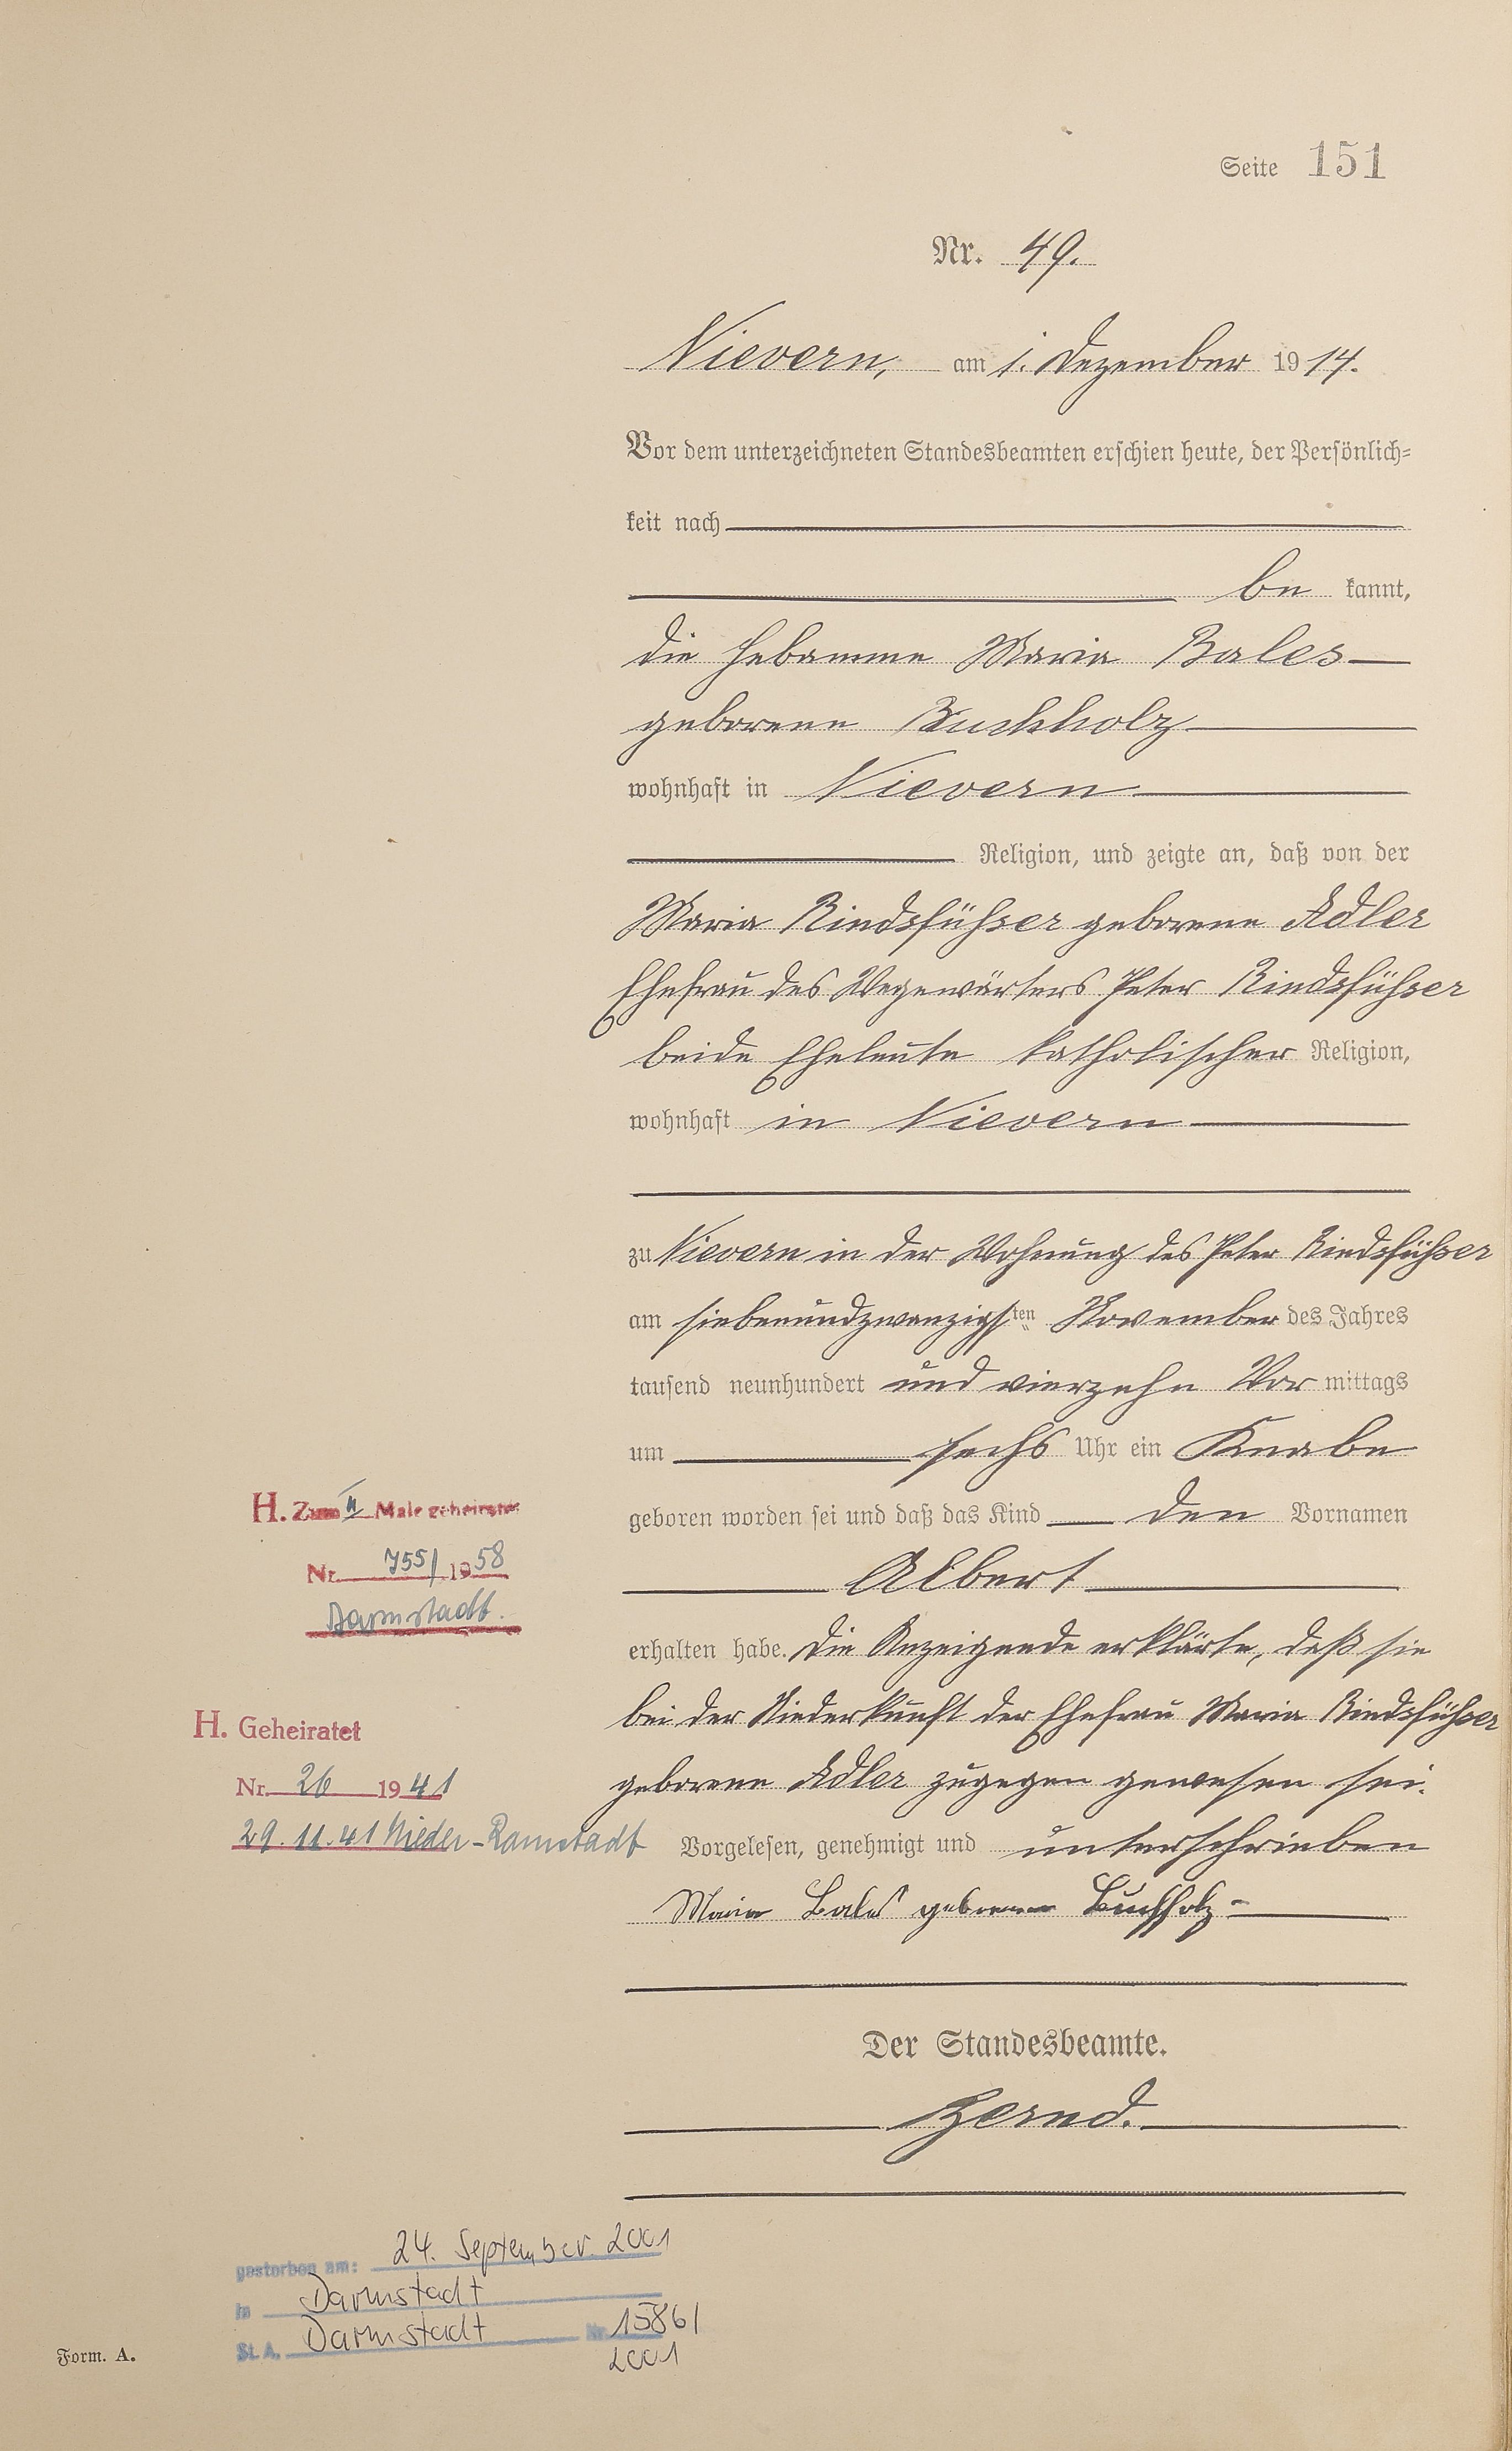 Seite 151
Nr. 49.
Nievern, am 1. Dezember 1914.
Vor dem unterzeichneten Standesbeamten erschien heute, der Persönlich=
keit nach
be kannt,
die Hebamme Maria Bales
geborene Buchholz
wohnhaft in Nievern
Religion, und zeigte an, daß von der
Maria Rindsfüßer geborene Adler
Ehefrau des Wegewärters Peter Rindsfüßer
beide Eheleute katholischer Religion,
wohnhaft in Nievern
zu Nievern in der Wohnung des Peter Rindsfüßer
am siebenundzwanzigsten November des Jahres
tausend neunhundert und vierzehn Vor mittags
um sechs Uhr ein Knabe
geboren worden sei und daß das Kind den Vornamen
Albert
erhalten habe. Die Anzeigende erklärte, daß sie
bei der Niederkunft der Ehefrau Maria Rindsfüßer
geborene Adler zugegen gewesen sei.
Vorgelesen, genehmigt und unterschrieben
Maria Bales geborene Buchholz
Der Standesbeamte.
H. Zum II Male geheiratet
Nr. 755/1958
Darmstadt.
H. Geheiratet
Nr. 26 1941
29.11.41 Nieder-Ramstadt
gestorben am: 24. September 2001
in Darmstadt
St. A. Darmstadt Nr. 1586/
2001
Form. A.